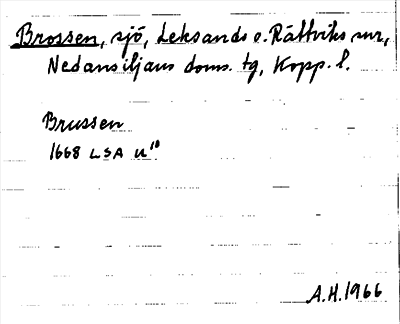 Brossen, sjö, Leksands o. Rättviks snr,
Nedansiljans doms. tg, Kopp. l.
Brussen
1668 LSA U¹⁰
A.H. 1966